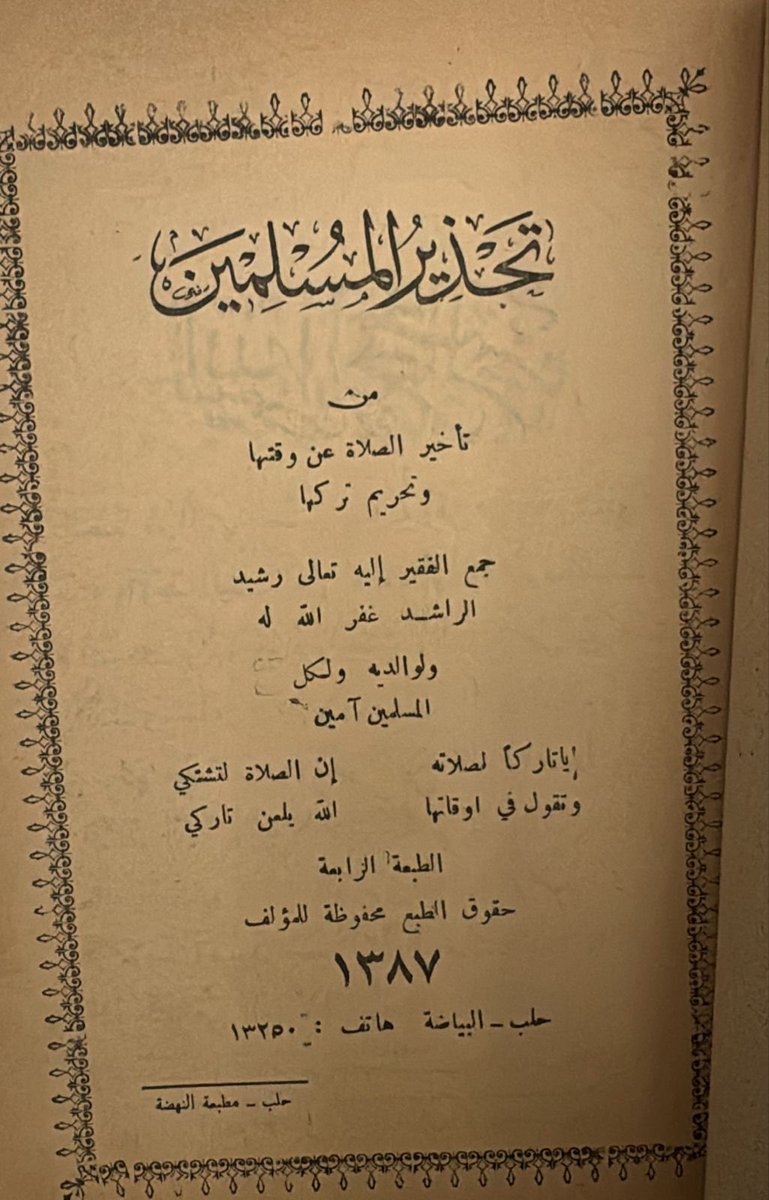 تحذير المسلمين
من
تأخير الصلاة عن وقتها
وتحريم تركها
جمع الفقير إليه تعالى رشيد
الراشد غفر الله له
ولوالديه ولكل
المسلمين آمين
إياتاركاً لصلاته إن الصلاة لتشتكي
وتقول في اوقاتها الله يلعن تاركي
الطبعة الرابعة
حقوق الطبع محفوظة للمؤلف
١٣٨٧
حلب - البياضة هاتف : ١٣٢٥٠
حلب - مطبعة النهضة